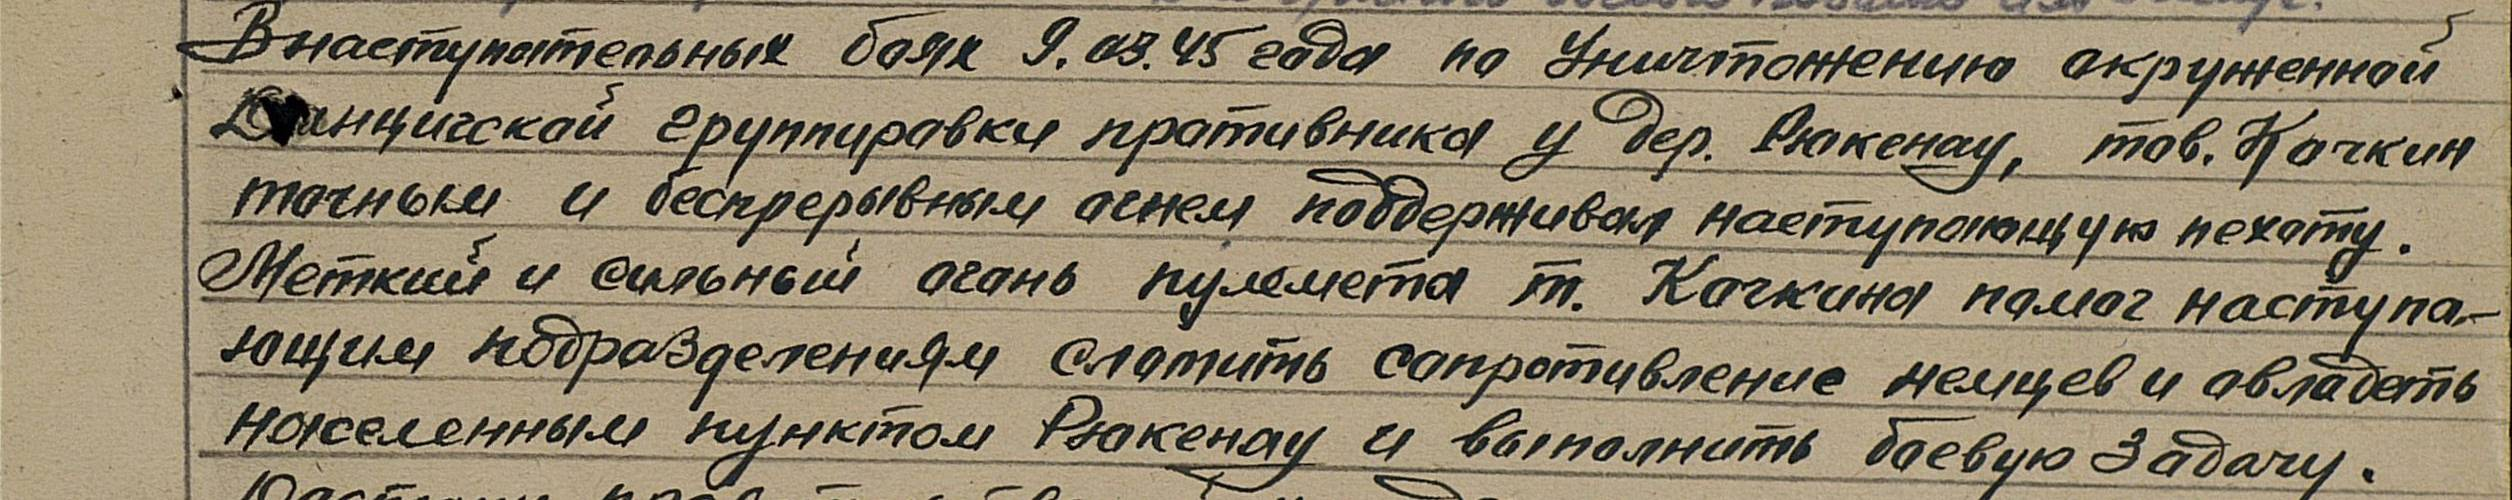 В наступательных боях 9.03.45 года по уничтожению окруженной
Данцигской группировки противника у дер. Рюкенау, тов. Качкин
точным и беспрерывным огнем поддерживал наступающую пехоту.
Меткий и сильный огонь пулемета т. Качкина помог наступа-
ющим подразделениям сломить сопротивление немцев и овладеть
населенным пунктом Рюкенау и выполнить боевую задачу.